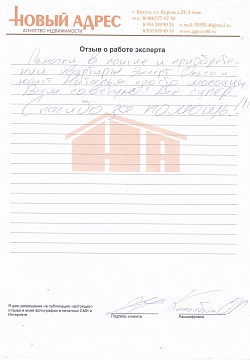 НОВЫЙ АДРЕС
АГЕНТСТВО НЕДВИЖИМОСТИ
г. Калуга, ул. Кирова,д.24, 3 этаж
тел. 8(4842)77-07-50
Отзыв о работе эксперта
Помогли в поиске и приобрете-
нии квартиры Эксперт Ольга и
юрист Наталья просто молодцы
Всем советую. Всё супер.
Спасибо за помощь!!!
Я даю разрешение на публикацию настоящего
отзыва и моей фотографии в печатных СМИ и
Интернете
Подпись клиента
Расшифровка